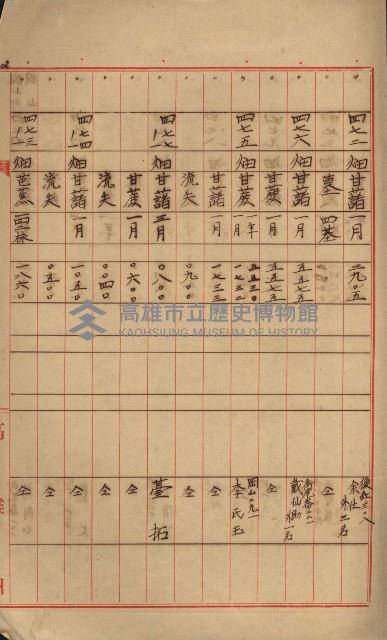 〃 四七二 畑 甘藷 一月 二九〇五 後紅三〇八 余仕 外二名
〃 墓 四基 仝
〃 四七六 畑 甘藷 一月 五五七五 戴仙助 一名
〃 甘蔗 一月 五五七五 仝
〃 四七五 畑 甘蔗 一年 五五三〇 岡山二九一 李氏玉
甘藷 一月 一七三三 仝
流失 〇九〇〇 仝
〃 四七一ノ七 畑 甘藷 三月 〇八〇〇 臺拓
〃 甘蔗 一月 〇六〇〇 仝
〃 流失 〇〇四〇 仝
〃 四七一ノ四 畑 甘藷 一月 一〇五〇 仝
〃 流失 〇五〇〇 仝
〃 四七三ノ一 畑 一八六〇 仝
高雄市立歷史博物館
KAOHSIUNG MUSEUM OF HISTORY
高雄州